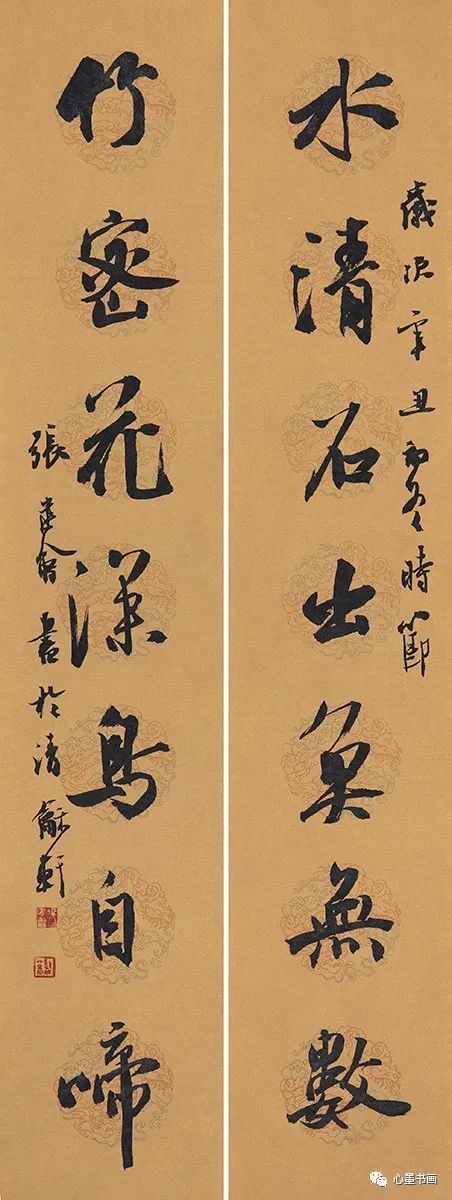 水清石出魚無數
歲次辛丑初冬時節
竹密花深鳥自啼
張建會書於清龢軒
心墨书画